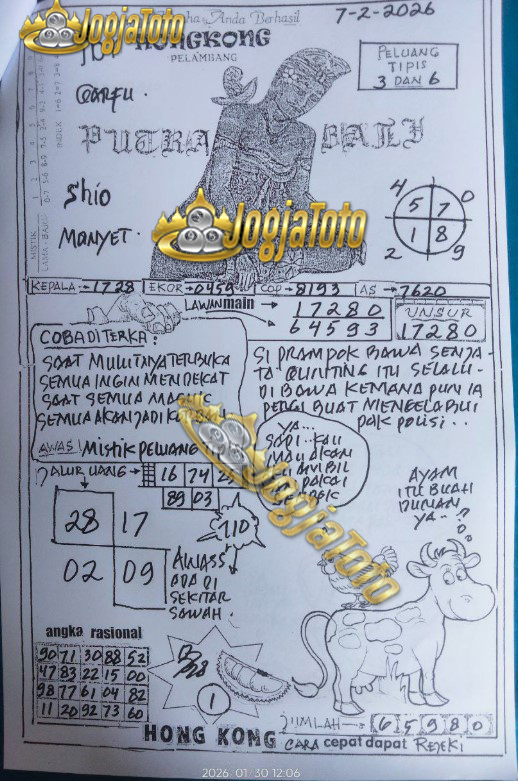 JogjaToto
Anda Berhasil
7-2-2026
HONGKONG
PELAMBANG
PELUANG
TIPIS
3 DAN 6
PUTRA BALI
Shio
Monyet
JogjaToto
4 5 7 0
2 1 8 9
KEPALA→1728 EKOR→0459 COP→8193 AS→7620
LAWAN main → 17280
64593
UNSUR
17280
COBA DI TERKA:
SAAT MULUTNYA TERBUKA
SEMUA INGIN MENDEKAT
SAAT SEMUA
SEMUA AKAN JADI
AWAS! Mistik peluang
SI PRAMPOK BAWA SENJA-
TA GUNTING ITU SELALU
DI BAWA KEMANA PUN IA
PERGI BUAT MENGELABUI
PAK POLISI..
YA...
JALUR UANG→ 16 74
89 03
JogjaToto
AYAM
ITU BUAH
DURIAN
YA..?
28 17
02 09
110
AWASS
ADA DI
SEKITAR
SAWAH.
angka rasional
90 71 30 88 52
47 83 22 15 00
98 77 61 04 82
11 20 92 73 60
1
JUMLAH→ 65980
HONG KONG CARA cepat dapat REJEKI
2026-01-30 12:06